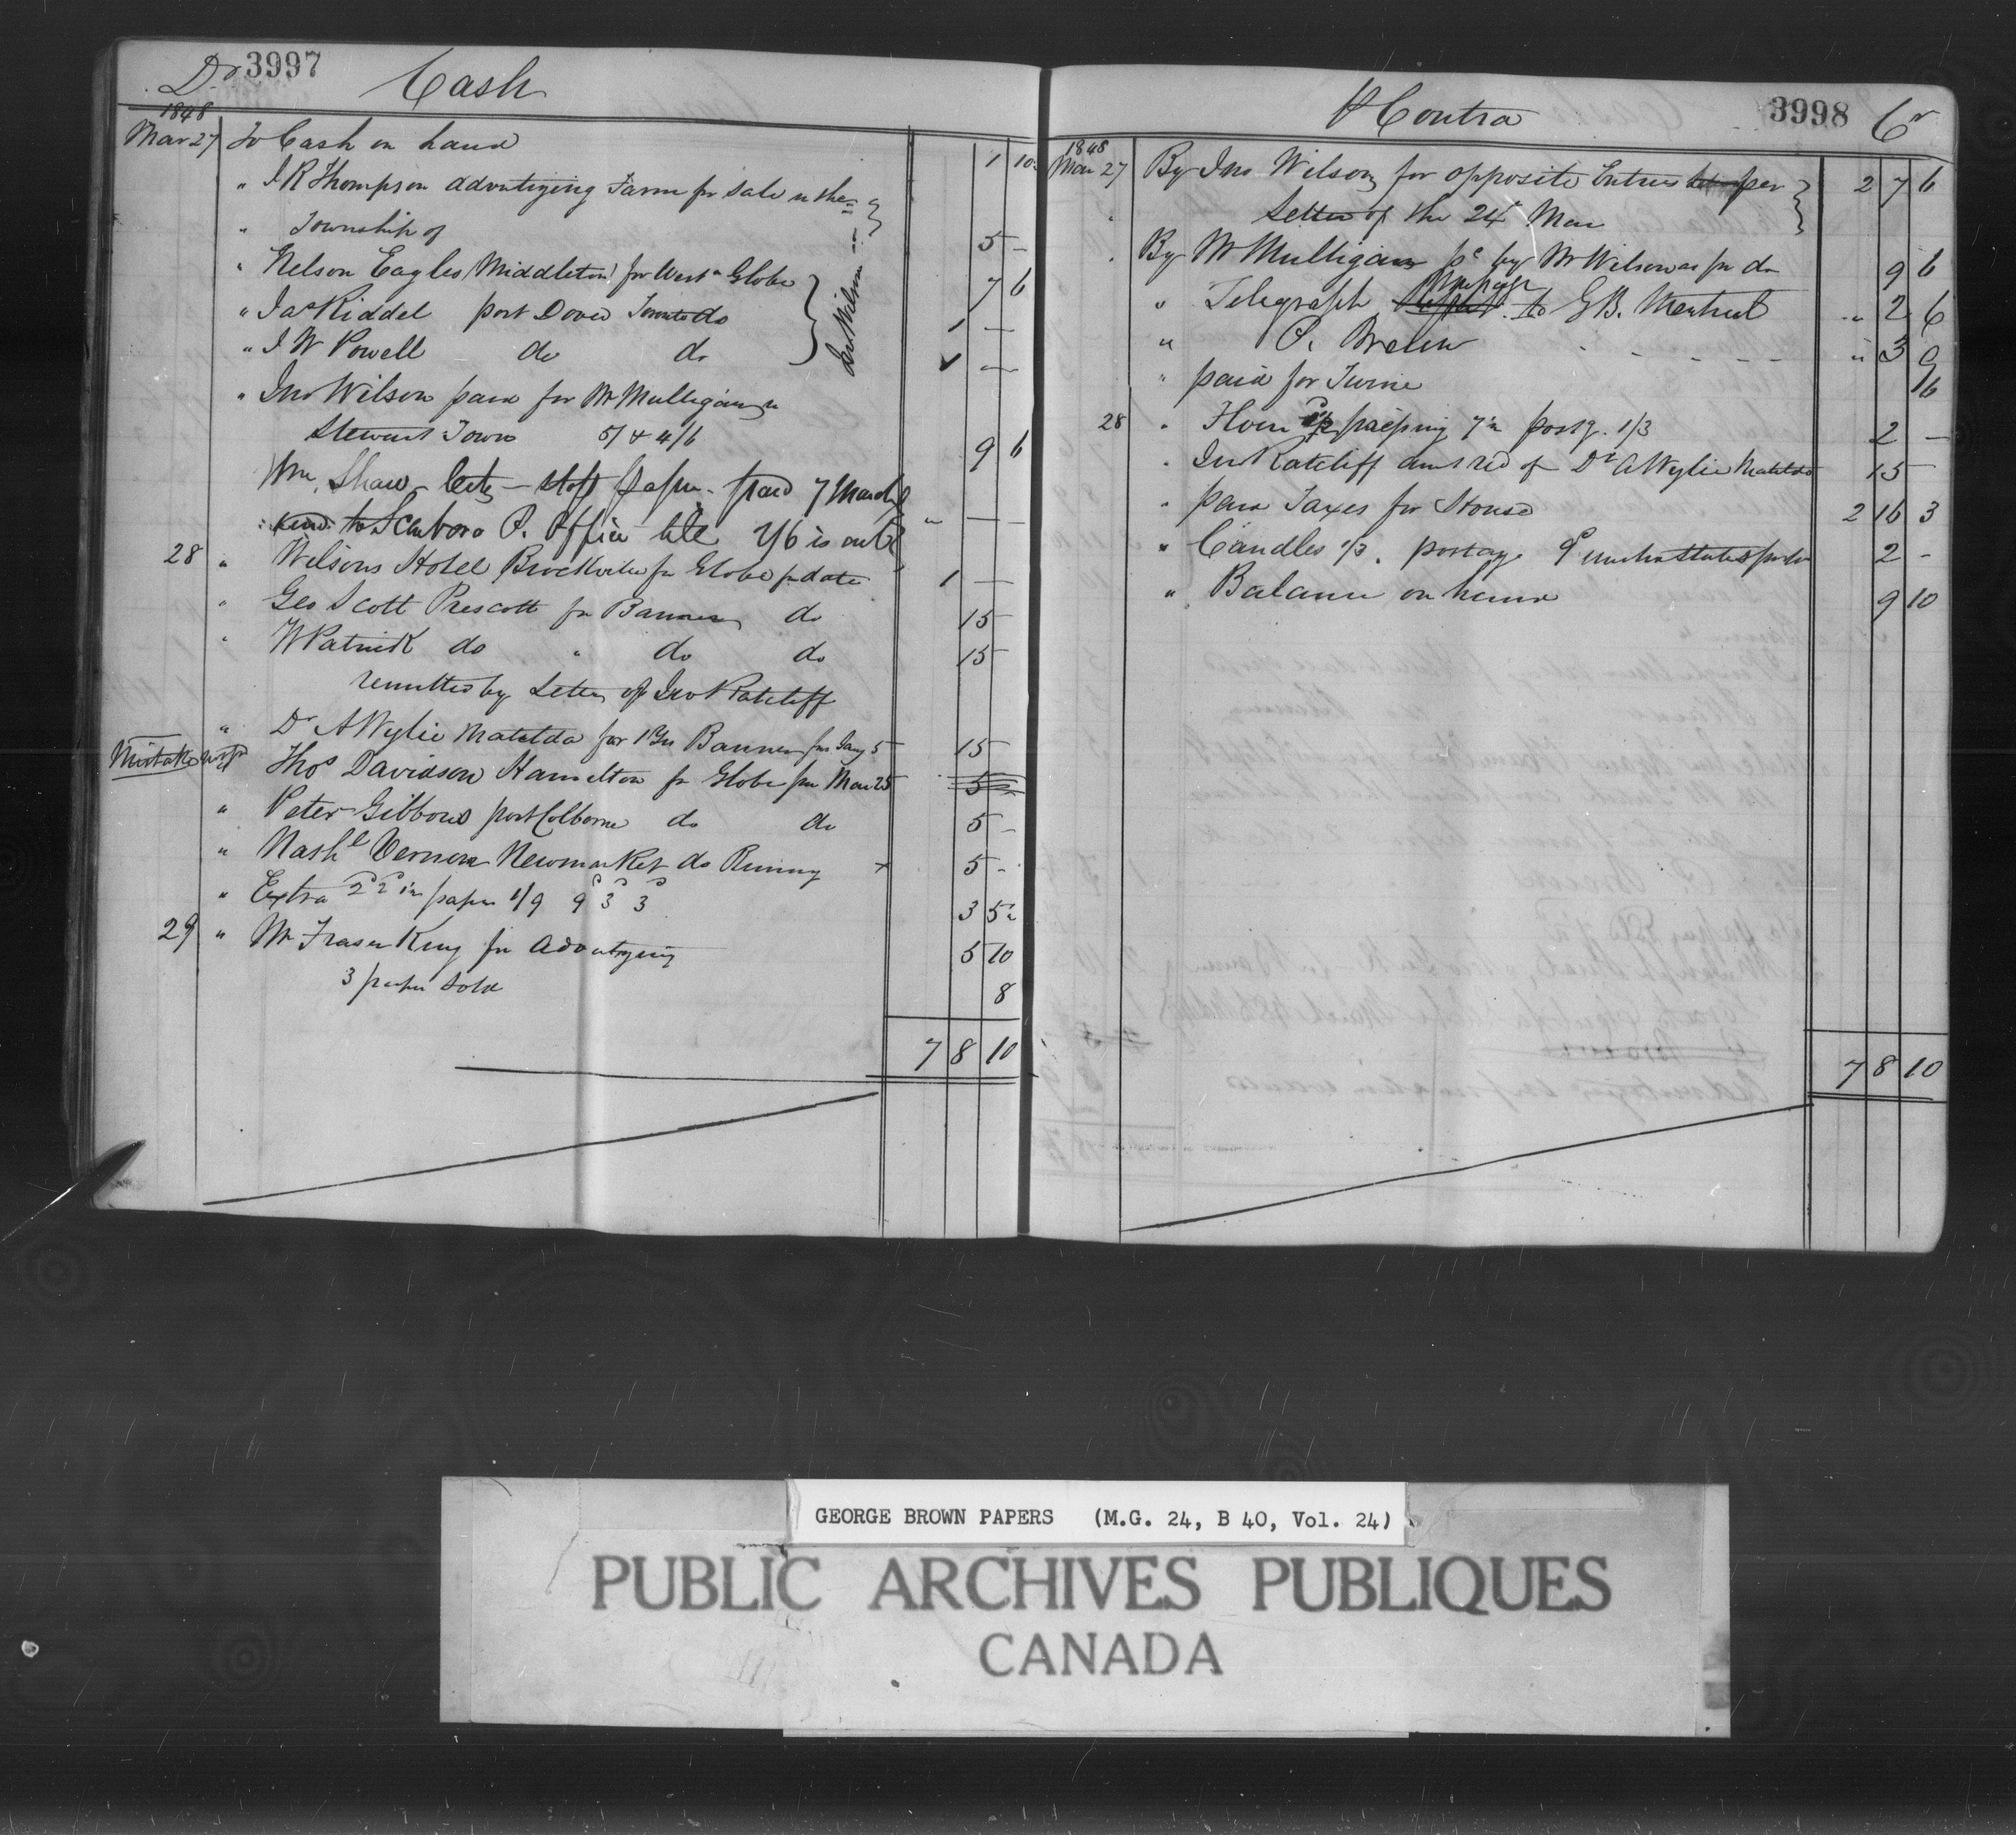 Dr 3997 Cash
1848
Mar 27 To Cash on hand 1 10½
" J R Thompson advertizing Farm for Sale in the
" Township of 5 –
" Nelson Eagles (Middleton) for West n Globe 7 6
" Jas Riddel port Dover Toronto do 1 – –
" J W Powell do do 1 – –
Jno Wilson
" Jno Wilson paid for Mr Mulligan
Stewart Town 5/ & 4/6 9 6
Wm Shaw – City – stop paper – paid 7 March
send to Scarboro P. Office till 7/6 is out " – –
28 " Wilsons Hotel Brockville for Globe pr date 1 – –
" Geo Scott Prescott for Banner do 15
" W Patrick do " do do 15
remitted by Letter of Jno Ratcliff
" Dr A Wylie Matilda for 1 Yr Banner from Jany 5 15
Mistake " Thos Davidson Hamilton for Globe from Mar 25 5
" Peter Gibbons port Colborne do do 5 –
" Nashl Vernon Newmarket do Runing + 5 –
" Extra 2d 2d 1½ papers 1/9 9d 3d 3d 3 5½
29 " Mr Fraser King for Advertizing 5 10
3 papers sold 8
7 8 10
& Contra 3998 Cr
1848
Mar 27 By Jno Wilson for opposite Entries per 2 7 6
Letter of the 24th Mar
By Mr Mulligan pd by Mr Wilson as pr do 9 6
Message
" Telegraph to G B. Montreal " 2 6
" P. Brown - - - - - " 3 9
" paid for Twine 6
28 " Flour for pasting 7½ postg. 1/3 2 –
" Jno Ratcliff amt red of Dr A Wylie Matilda 15
" paid Taxes for House 2 16 3
" Candles 1/3. postage 9d 2 –
" Balance on hand 9 10
7 8 10
GEORGE BROWN PAPERS (M.G. 24, B 40, Vol. 24)
PUBLIC ARCHIVES PUBLIQUES
CANADA